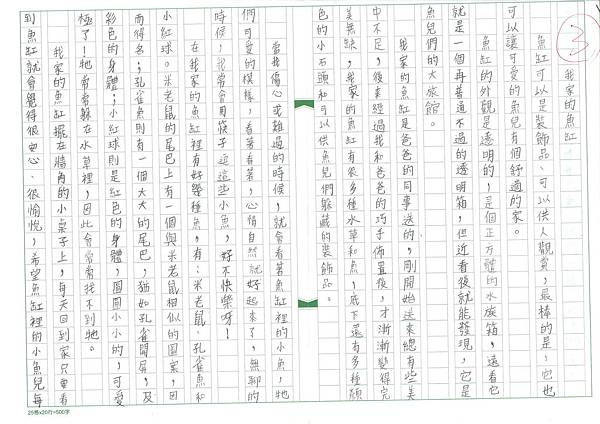 3
我家的魚缸
魚缸可以是裝飾品、可以供人觀賞，最棒的是，它也
可以讓可愛的魚兒有個舒適的家。
魚缸的外觀是透明的，是個正方體的水族箱，遠看它
就是一個再普通不過的透明箱，但近看後就能發現，它是
魚兒們的大旅館。
我家的魚缸是爸爸的同事送的，剛開始送來總有些美
中不足，後來經過我和爸爸的巧手佈置後，才漸漸變得完
美無缺，我家的魚缸有很多種水草和魚，底下還有多種顏
色的小石頭和可以供魚兒們躲藏的裝飾品。
當我傷心或難過的時候，就會看著魚缸裡的小魚，牠
們可愛的模樣，看著看著，心情自然就好起來了，無聊的
時候，我常會用筷子逗這些小魚，好不快樂呀！
在我家的魚缸裡有好幾種魚，有：米老鼠、孔雀魚和
小紅球。米老鼠的尾巴上有一個與米老鼠相似的圖案，因
而得名；孔雀魚則有一個大大的尾巴，猶如孔雀開屏，及
彩色的身體；小紅球則是紅色的身體，圓圓小小的，可愛
極了！牠常常躲在水草裡，因此會常常找不到牠。
我家的魚缸擺在牆角的小桌子上，每天回到家只要看
到魚缸就會覺得很安心、很愉悅，希望魚缸裡的小魚兒每
25格x20行=500字